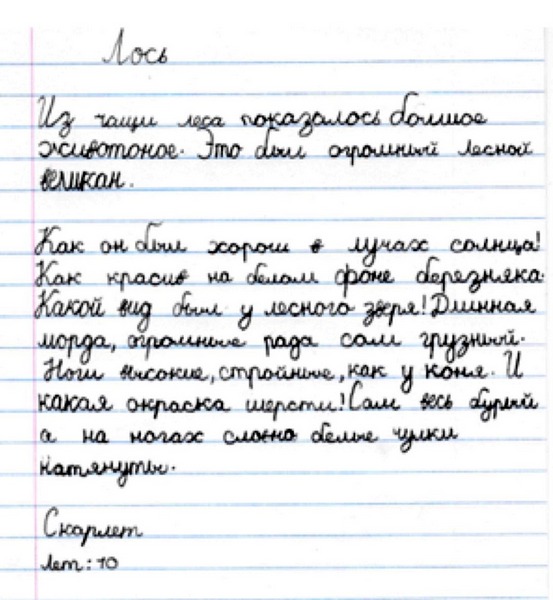 Лось
Из чащи леса показалось болшое
животоное. Это был огромный лесной
великан.
Как он был хорош в лучах солнца!
Как красив на белом фоне березняка.
Какой вид был у лесного зверя! Длинная
морда, огромные рада сам грузный.
Ноги высокие, стройные, как у коня. И
какая окраска шерсти! Сам весь бурый
а на ногах словно белые чулки
натянуты.
Скарлет
лет: 10